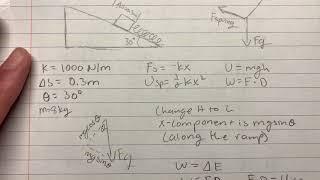 30°
Fspring
Fg
K = 1000 N/m
Fs = -kx
U = mgh
ΔS = 0.3m
Usp = ½kx²
W = F · D
θ = 30°
m=8kg
Change H to L
x-component is mgsinθ
(along the ramp)
mgcosθ
mgsinθ
Fg
W = ΔE